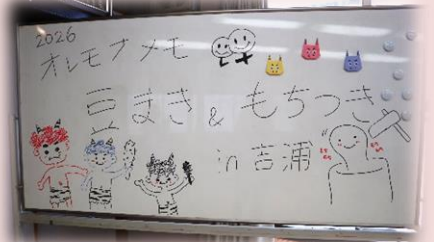 2026
オレモナメモ
豆まき & もちつき
in 吉浦